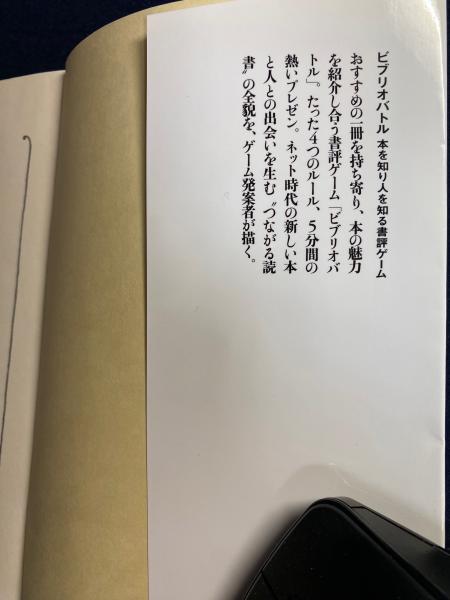 ビブリオバトル 本を知り人を知る書評ゲーム
おすすめの一冊を持ち寄り、本の魅力
を紹介し合う書評ゲーム「ビブリオバ
トル」。たった4つのルール、5分間の
熱いプレゼン。ネット時代の新しい本
と人との出会いを生む〝つながる読
書〟の全貌を、ゲーム発案者が描く。